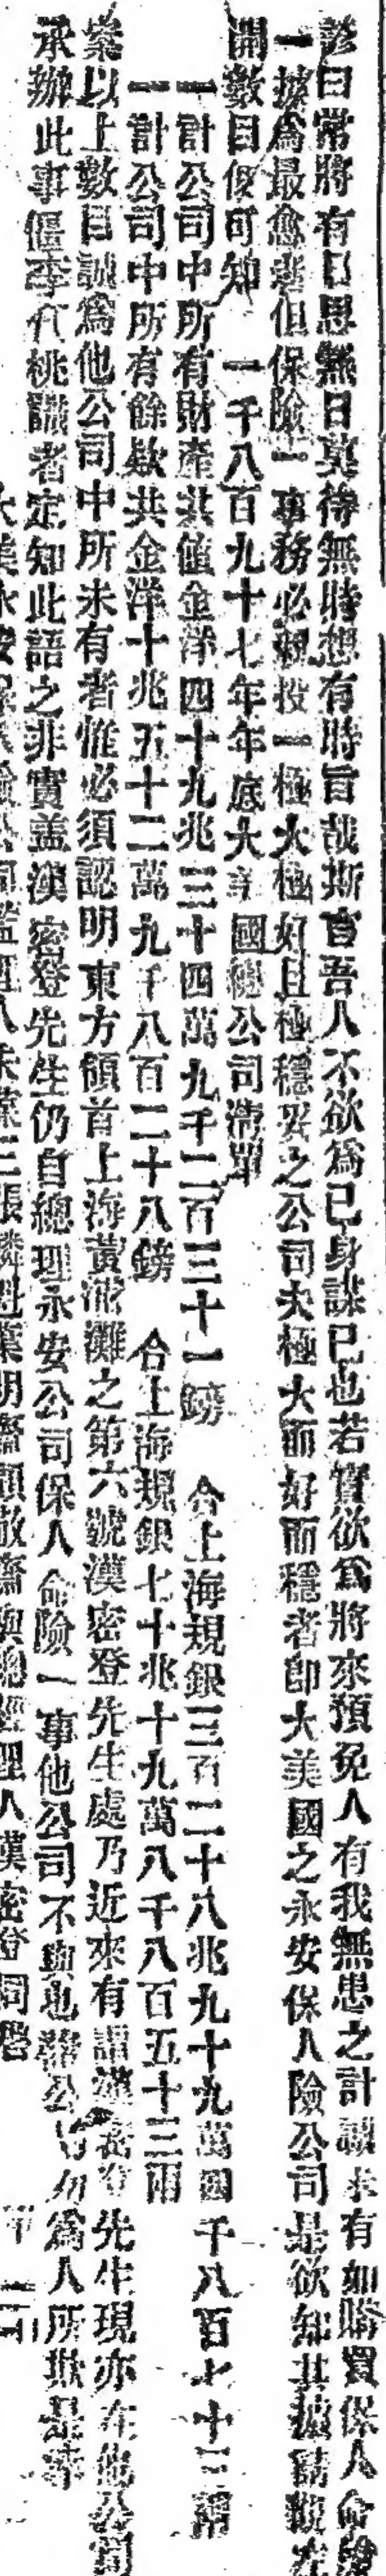 諺曰常將有日思無日莫待無時想有時旨哉斯言吾人不欲爲已身謀已也若實欲爲將來預免人有我無患之計誠未有如購買保人命險
一據爲最愈者但保險一事務必親投一極大極好且極穩妥之公司夫極大而好而穩者即大美國之永安保人險公司是欲知其據請觀左
開數目便可知 一千八百九十七年年底大美國總公司清單
一計公司中所有財產共値金洋四十九兆三十四萬九千二百三十一鎊 合上海規銀三百二十八兆九十九萬四千八百七十三兩
一計公司中所有餘欵共金洋十兆五十二萬九千八百二十八鎊 合上海規銀七十兆十九萬八千八百五十三兩
案以上數目誠爲他公司中所未有者惟必須認明東方領首上海黃浦灘之第六號漢密登先生處乃近來有謂漢密登先生現亦在他公司
承辦此事僵李代桃識者定知此語之非實盖漢密登先生仍自總理永安公司保人命險一事他公司不與也諸公皆勿爲人所欺是幸
大美永安保人險公司 經理人朱葆三張 葉明齋顧敬齋與總經理人漢密登同啓